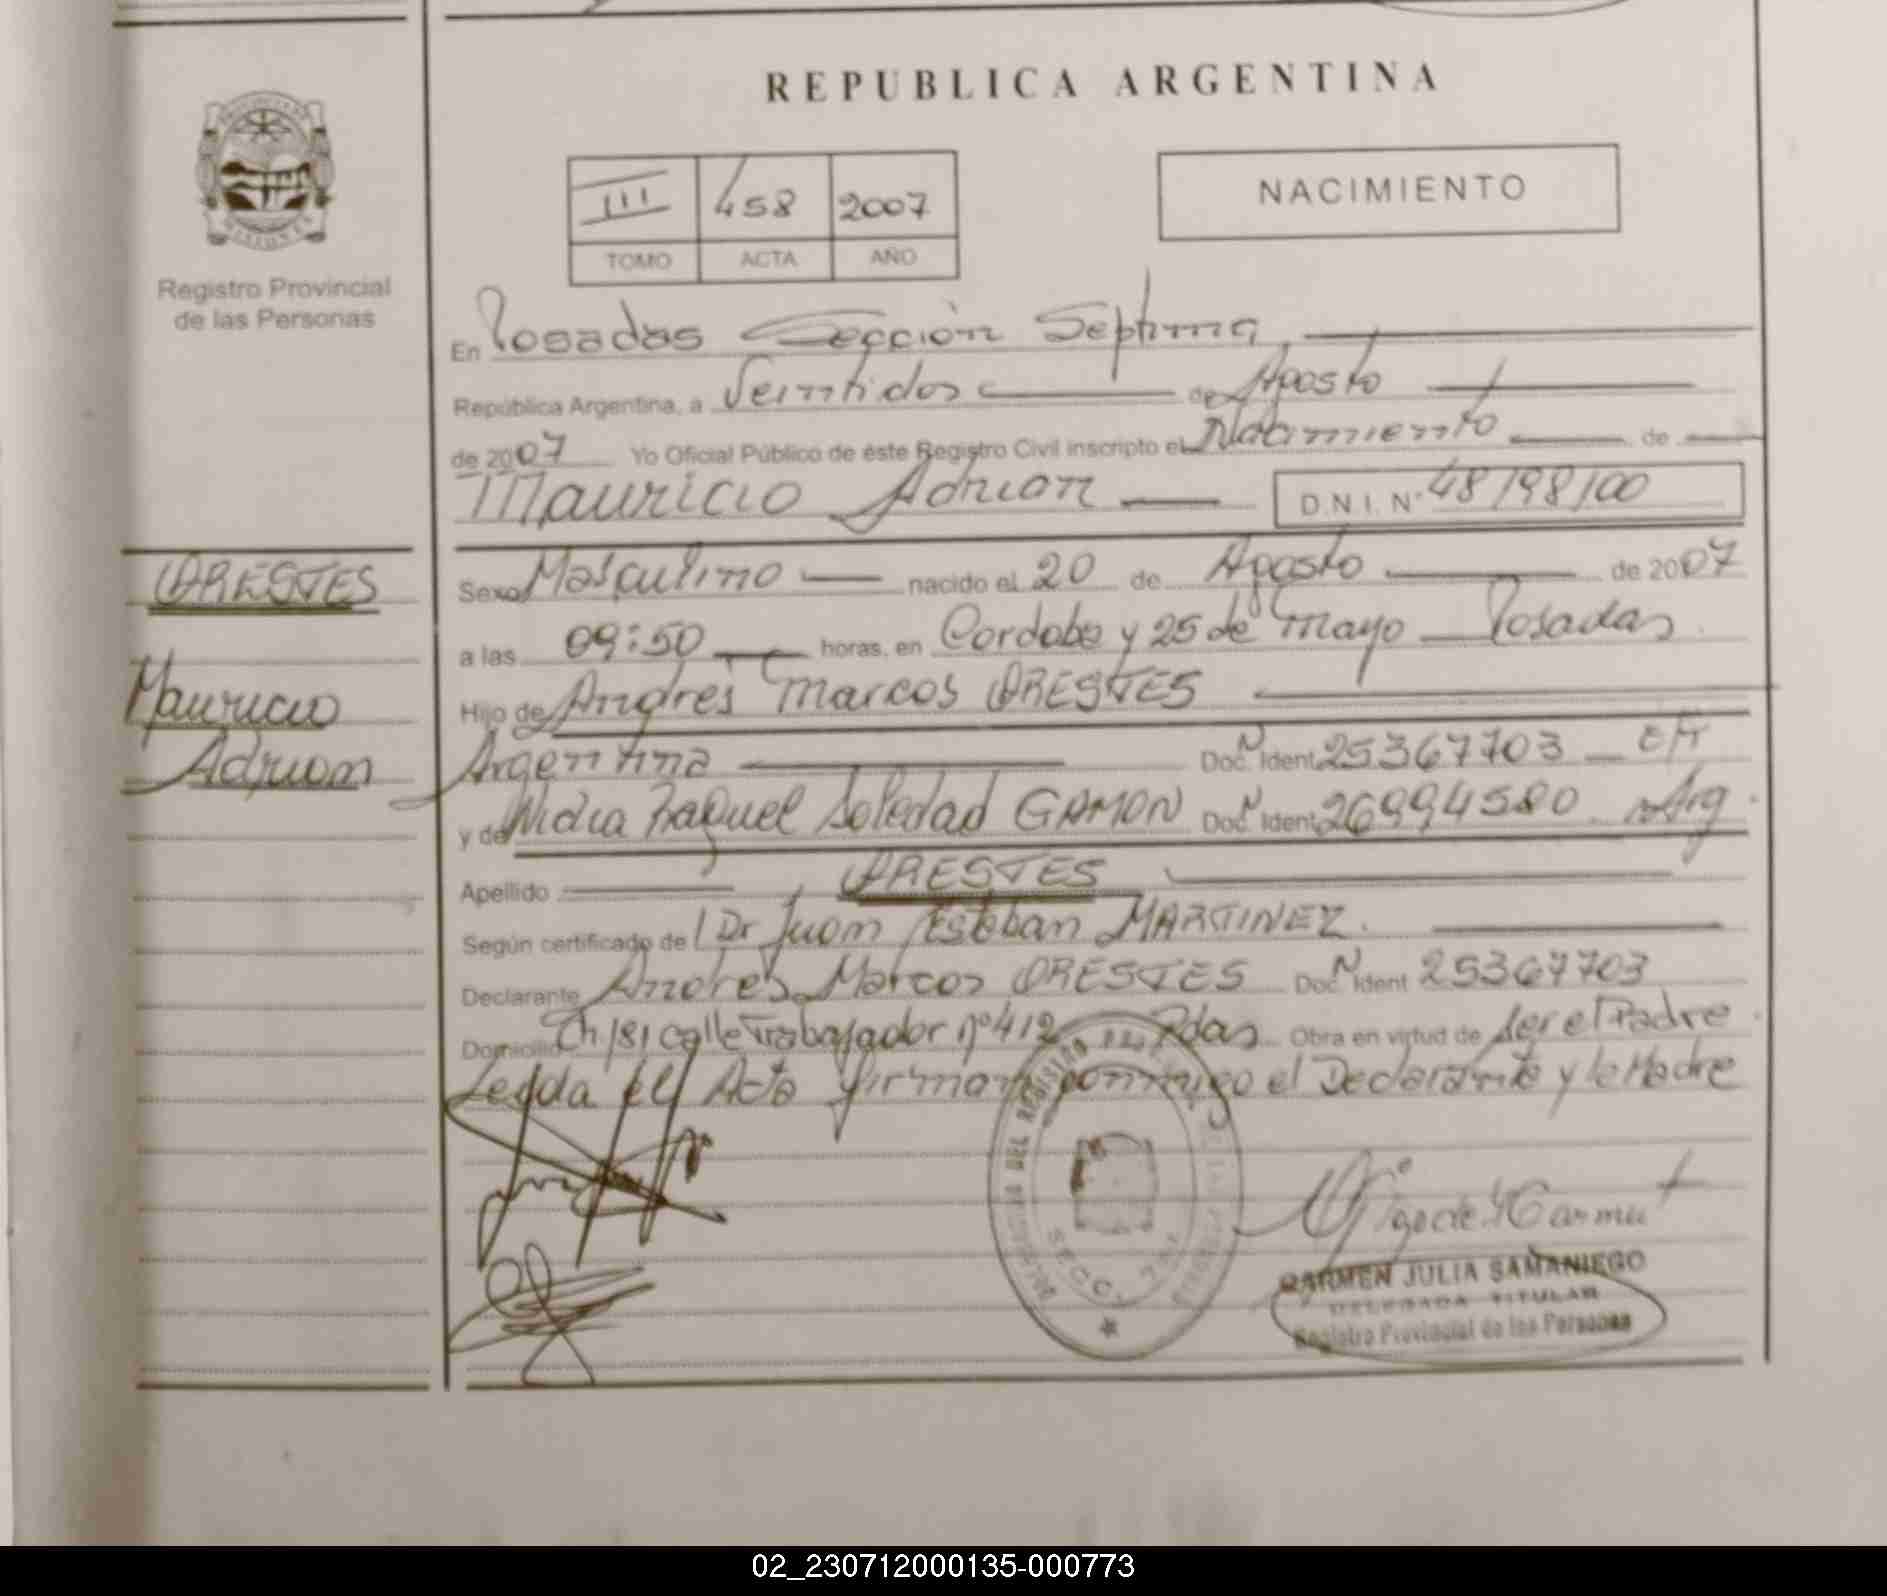 REPUBLICA ARGENTINA
III 458 2007
TOMO ACTA AÑO
NACIMIENTO
MISIONES
Registro Provincial
de las Personas
En Posadas Sección Septima
República Argentina, a Veintidos de Agosto
de 2007 Yo Oficial Público de éste Registro Civil inscripto el Nacimiento de
Mauricio Adrian D.N.I. Nº 48198100
ORESTES
Mauricio
Adrian
Sexo Masculino nacido el 20 de Agosto de 2007
a las 09:50 horas, en Cordoba y 25 de Mayo Posadas
Hijo de Andres Marcos ORESTES
Argentina Doc. Ident 25367703
y de Nidia Raquel Soledad GAMON Doc. Ident 26994580 Arg.
Apellido ORESTES
Según certificado de Dr Juan Esteban MARTINEZ.
Declarante Andres Marcos ORESTES Doc. Ident 25367703
Domicilio Ch 181 calle Trabajador nº 412 Pdas Obra en virtud de ser el Padre
Leyda el Acta firman conmigo el Declarante y la Madre
CARMEN JULIA SAMANIEGO
DELEGADA TITULAR
Registro Provincial de las Personas
02_230712000135-000773